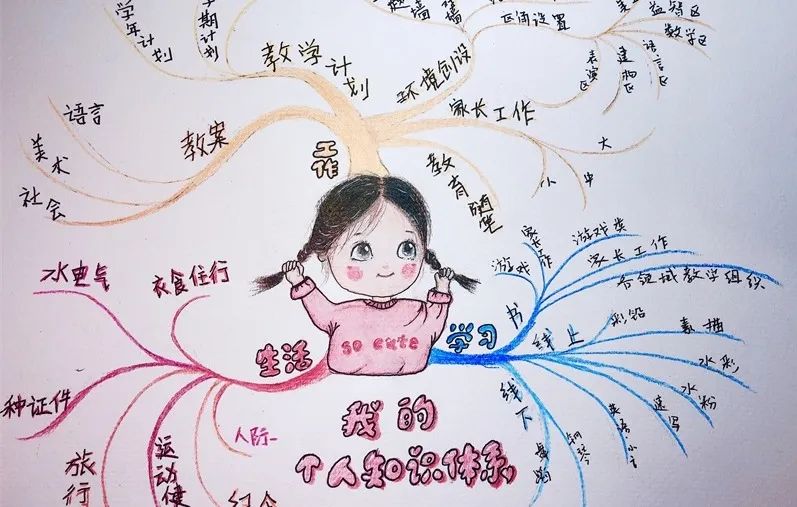 学年计划
学期计划
教学计划
环境创设
区角设置
益智区
数学区
语言区
建构区
表演区
家长工作
大
中
小
教育随笔
教案
语言
美术
社会
工作
so cute
生活
水电气
衣食住行
种证件
旅行
运动健
人际
学习
书
游戏
游戏类
家长工作
各领域教学组织
线上
彩铅
素描
水彩
水粉
速写
线下
钢琴
我的
个人知识体系